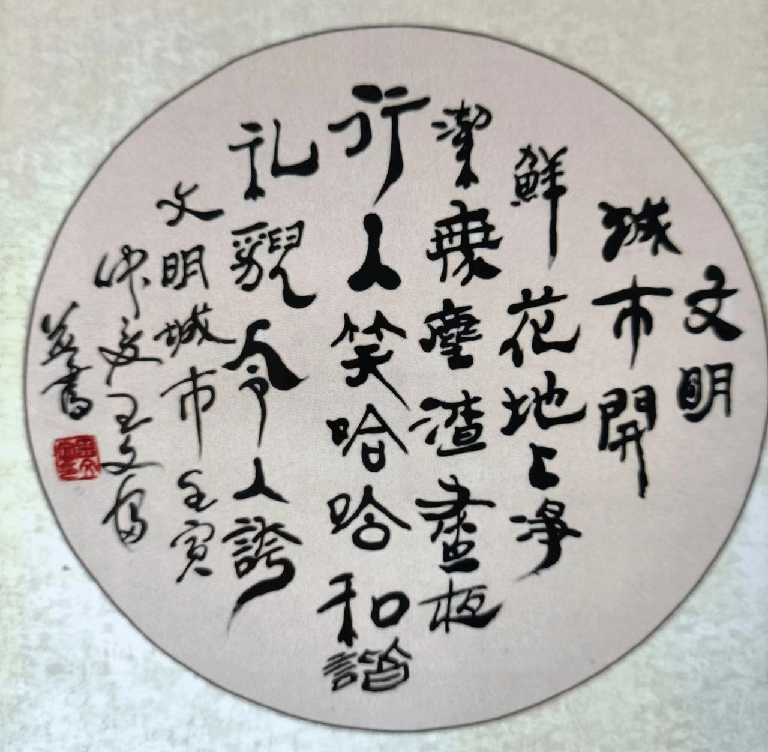 文明
城市開
鮮花地上淨
潔無塵渣畫板
行人笑哈哈和諧
礼貌令人誇
文明城市壬寅
仲夏王文
並書